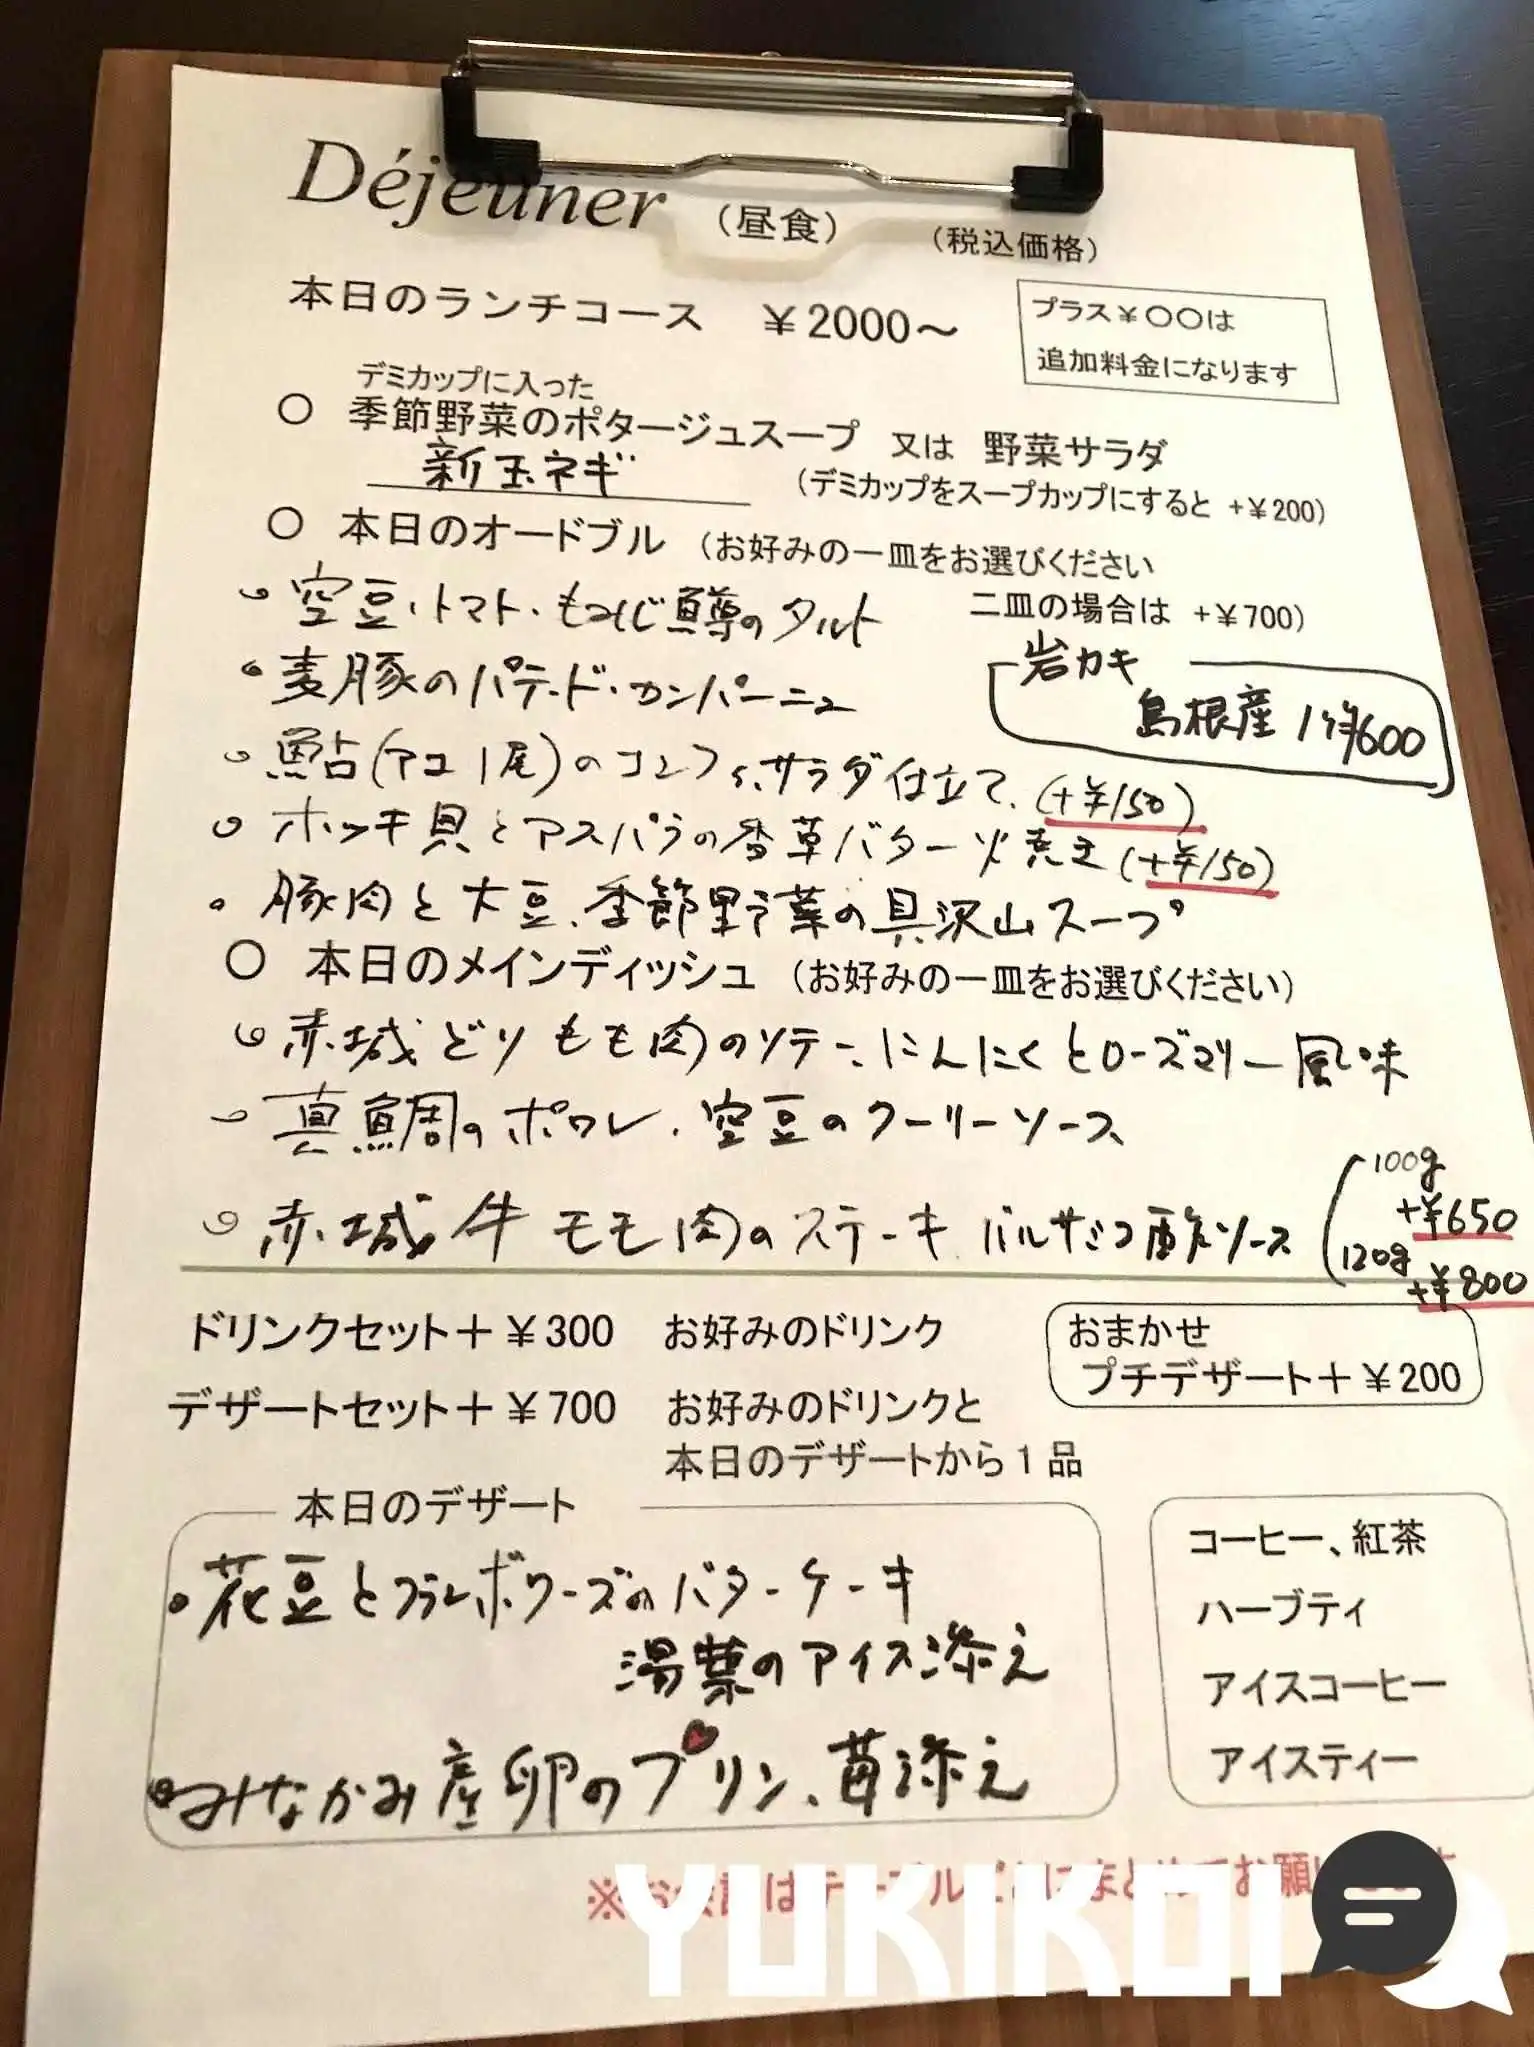 Déjeuner (昼食) (税込価格)
本日のランチコース ¥2000～
プラス¥〇〇は
追加料金になります
デミカップに入った
○ 季節野菜のポタージュスープ 又は 野菜サラダ
新玉ネギ
(デミカップをスープカップにすると +¥200)
○ 本日のオードブル (お好みの一皿をお選びください
二皿の場合は +¥700)
空豆・トマト・もみじ鱒のタルト
岩カキ
島根産 1ケ¥600
麦豚のパテ・ド・カンパーニュ
鮎(アユ1尾)のコンフィ、サラダ仕立て、(+¥150)
ホッキ貝とアスパラの香草バター焼き(+¥150)
豚肉と大豆、季節野菜の具沢山スープ
○ 本日のメインディッシュ (お好みの一皿をお選びください)
赤城どりもも肉のソテー、にんにくとローズマリー風味
真鯛のポワレ、空豆のクーリーソース
赤城牛モモ肉のステーキ バルサミコ酢ソース
100g
+¥650
120g
+¥800
ドリンクセット+¥300 お好みのドリンク
おまかせ
プチデザート+¥200
デザートセット+¥700 お好みのドリンクと
本日のデザートから1品
本日のデザート
・花豆とフランボワーズのバターケーキ
湯葉のアイス添え
・みなかみ産卵のプリン、苺添え
コーヒー、紅茶
ハーブティ
アイスコーヒー
アイスティー
※お会計はテーブルごとにまとめてお願
YUKIKOI